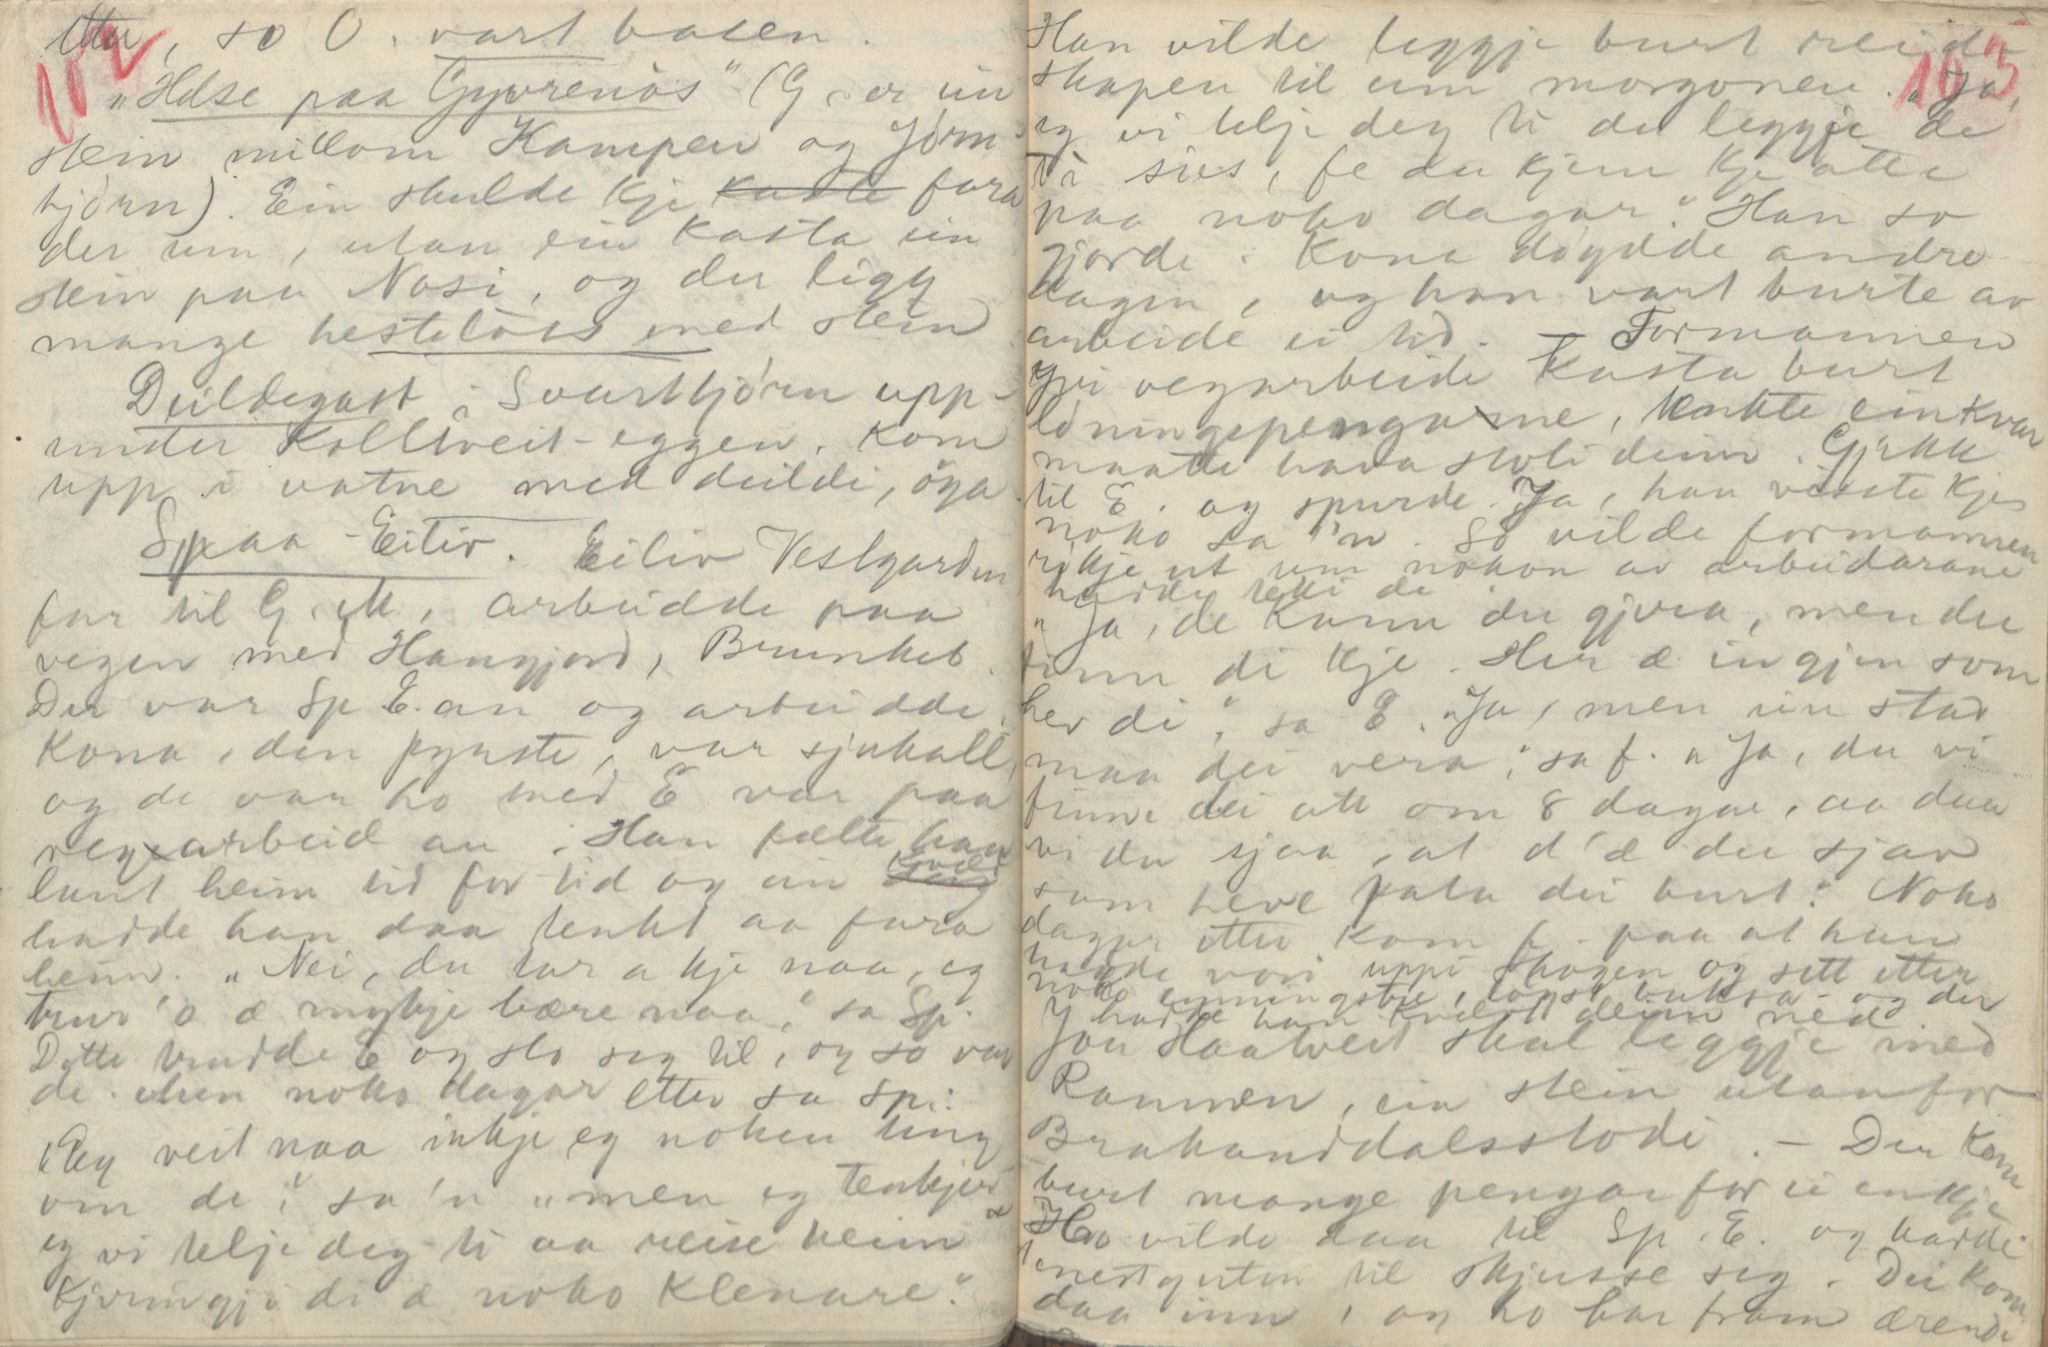 102
etter, so O. vart basen.
"Helse paa Gyvrenös" (G. er ein
stein millom Kampen og Jörn-
tjörn). Ein skulde kje kaste fara
der um, utan ein kasta ein
stein paa Nosi, og der ligg
mange hestelöss med stein
Deildegast i Svarttjörn upp-
under Kolltveit-eggen. Kom
upp i vatne med deildi, öya
Spaa-Eiliv. Eiliv Vestgarden
far til G. M., arbeidde paa
vegen med Haugjord, Brunkeb.
Der var Sp. E. an og arbeidde.
Kona, den fyrste, var sjukall,
og de var ho med E var paa
vegarbeid an. Han pælte han
lant heim tid for tid og ein kveld
hadde han daa tenkt aa fara
heim. "Nei, du tar a kje naa, eg
trur 'o æ mykje bære naa," sa Sp.
Dette trudde E og slo seg til, og so var
de. Men noko dagar etter sa Sp.:
"Eg veit naa inkje eg noken ting
om de," sa 'n "men eg tenkjer
eg vi telje deg ti aa reise heim
Kjeringji di æ noko klenare."
103
Han vilde leggje burt reid-
skapen til um morgonen. "Ja,
eg vi telje deg ti du leggje de
ti sies, fe du kjem kje atte
paa noko dagar." Han so
gjorde. Kona döydde andre
dagin, og han vart burte av
arbeide ei tid. – Formannen
yvi vegarbeide kasta burt
löningspengarne, tenkte einkvar
maatte hava stoli deim. Gjekk
til E. og spurde. Ja, han visste kje
noko sa 'n. So vilde formannen
rikje ut um nokon av arbeidarane
hadde teki de
"Ja, de kann du gjera, men du
finn di kje. Her æ ingjen som
hev di," sa E. "Ja, men ein stad
maa dei vera," sa f. "Ja, du vi
finne dei att om 8 dagar, aa daa
vi du sjaa, at d'æ du sjav
som heve pala dei burt." Noko
dagar etter kom f. paa at han
hadde vori uppi skogen og sett etter
noko emningstre, löyst buksa og der
hadde han kvelvt deim ned.
Jon Haatveit skal leggje med
Rammen, ein stein utanfor
Brakanddalsstödi. – Der kom
burt mange pengar for ei enkje
Ho vilde daa til Sp. E. og hadde
tenestguten til skjusse seg. Dei kom
daa inn, og ho bar fram ærendi